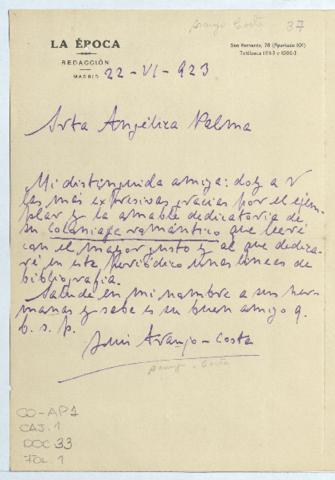 Araujo Costa
37
LA ÉPOCA
REDACCIÓN
MADRID
San Bernardo, 78 (Apartado XX)
22-VI-923
Srta Angélica Palma
Mi distinguida amiga: doy a V
las más expresivas gracias por el ejem-
plar y la amable dedicatoria de
su Coloniaje romántico que leeré
con el mayor gusto y al que dedica-
ré en este periódico unas líneas de
bibliografía.
Salude en mi nombre a sus her-
manas y sabe es su buen amigo q.
b. s. p.
Luis Araujo-Costa
Araujo-Costa
CO-AP1
CAJ. 1
DOC 33
FOL. 1